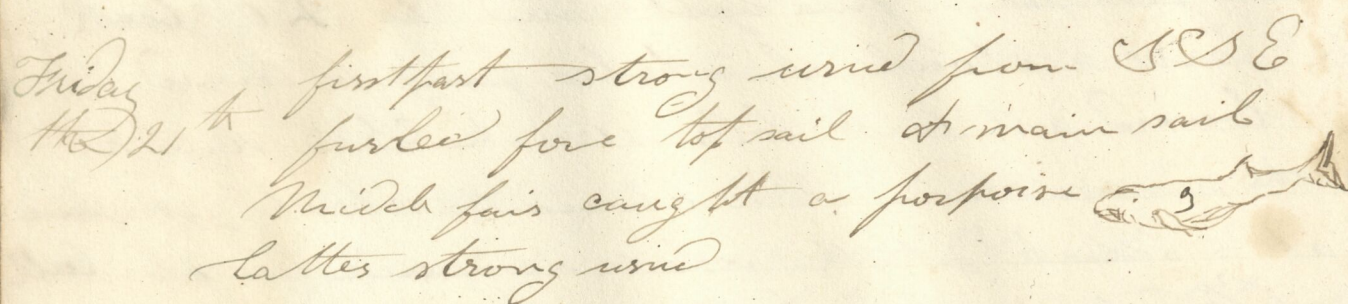 Friday first part strong wind from SSE
the 21th furled fore top sail & main sail
Middle fair caught a porpoise
latter strong wind